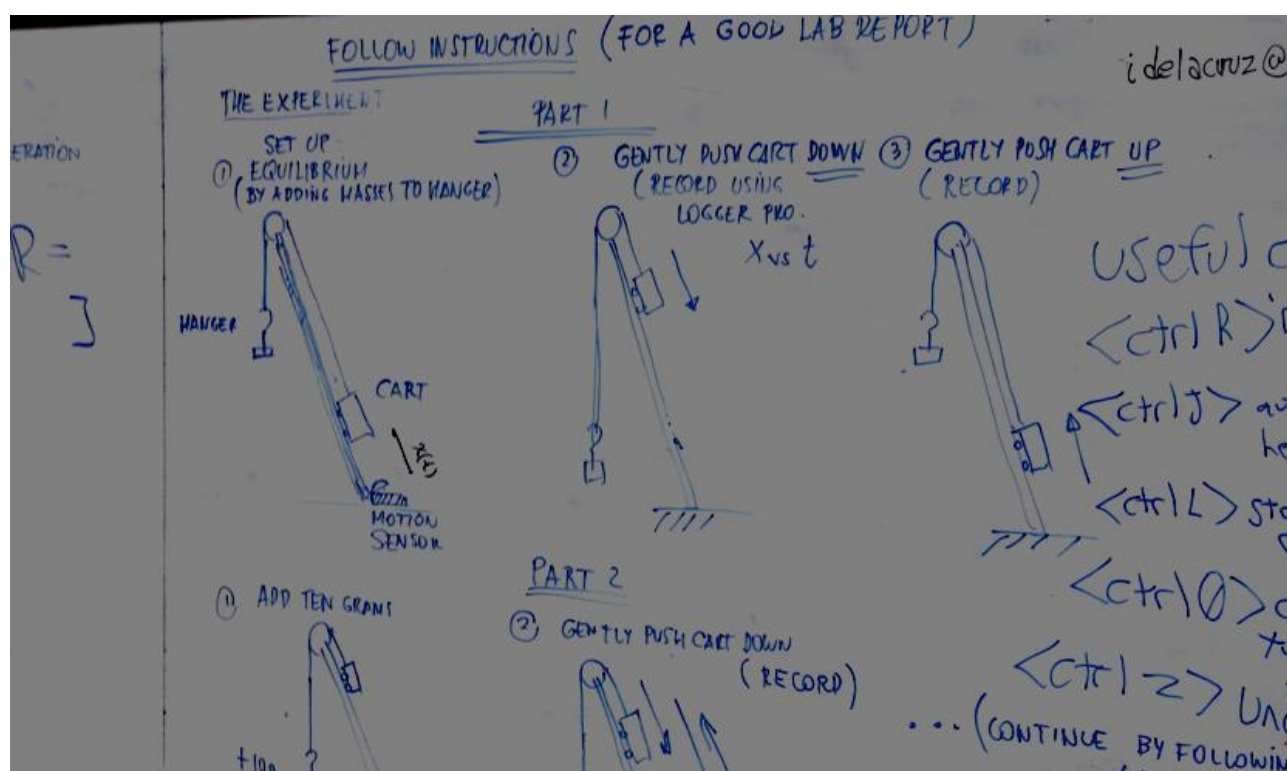 FOLLOW INSTRUCTIONS (FOR A GOOD LAB REPORT)
idelacruz@
ERATION
R =
]
THE EXPERIMENT
PART 1
SET UP
① EQUILIBRIUM
(BY ADDING MASSES TO HANGER)
HANGER
CART
MOTION
SENSOR
② GENTLY PUSH CART DOWN
(RECORD USING
LOGGER PRO.
X vs t
③ GENTLY PUSH CART UP
(RECORD)
useful c
<ctrl R>
<ctrl J>
<ctrl L>
<ctrl 0>
<ctrl z>
... (CONTINUE BY FOLLOWIN
PART 2
① ADD TEN GRAMS
② GENTLY PUSH CART DOWN
(RECORD)